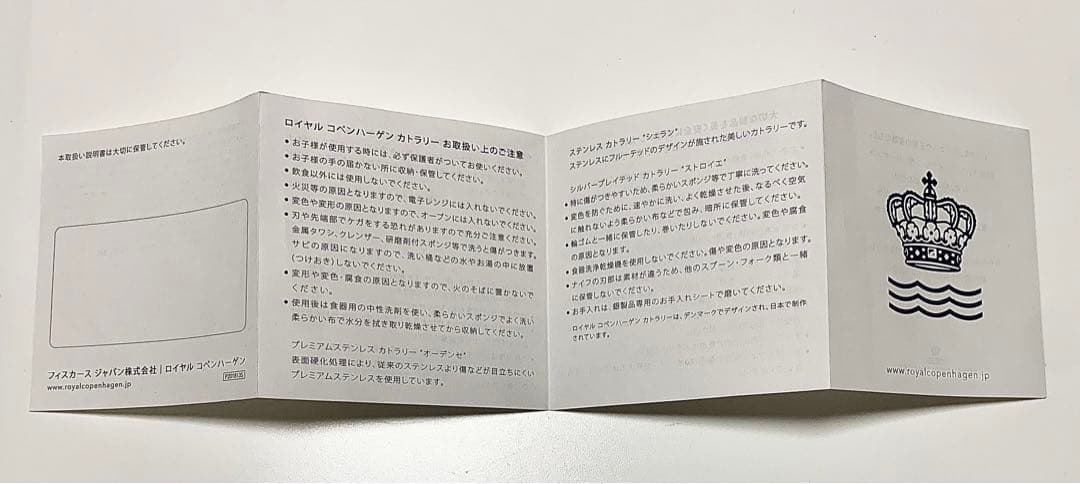 本取扱い説明書は大切に保管してください。
フィスカース ジャパン株式会社 | ロイヤル コペンハーゲン
www.royalcopenhagen.jp
ロイヤル コペンハーゲン カトラリー お取扱い上のご注意
● お子様が使用する時には、必ず保護者がついてお使いください。
● お子様の手の届かない所に収納・保管してください。
● 飲食以外には使用しないでください。
● 火災等の原因となりますので、電子レンジには入れないでください。
● 変色や変形の原因となりますので、オーブンには入れないでください。
● 刃や先端部でケガをする恐れがありますので充分ご注意ください。
金属タワシ、クレンザー、研磨剤付スポンジ等で洗うと傷がつきます。
サビの原因になりますので、洗い桶などの水やお湯の中に放置
(つけおき)しないでください。
● 変形や変色・腐食の原因となりますので、火のそばに置かないで
ください。
● 使用後は食器用の中性洗剤を使い、柔らかいスポンジでよく洗い
柔らかい布で水分を拭き取り乾燥させてから収納してください。
プレミアムステンレス カトラリー "オーデンセ"
表面硬化処理により、従来のステンレスより傷などが目立ちにくい
プレミアムステンレスを使用しています。
ステンレス カトラリー "シェラン"
ステンレスにフルーテッドのデザインが施された美しいカトラリーです。
シルバープレイテッド カトラリー "ストロイエ"
● 特に傷がつきやすいため、柔らかいスポンジ等で丁寧に洗ってください。
● 変色を防ぐために、速やかに洗い、よく乾燥させた後、なるべく空気
に触れないよう柔らかい布などで包み、暗所に保管してください。
● 輪ゴムと一緒に保管したり、巻いたりしないでください。変色や腐食
の原因となります。
● 食器洗浄乾燥機を使用しないでください。傷や変色の原因となります。
● ナイフの刃部は素材が違うため、他のスプーン・フォーク類と一緒
に保管しないでください。
● お手入れは、銀製品専用のお手入れシートで磨いてください。
ロイヤル コペンハーゲン カトラリーは、デンマークでデザインされ、日本で制作
されています。
www.royalcopenhagen.jp